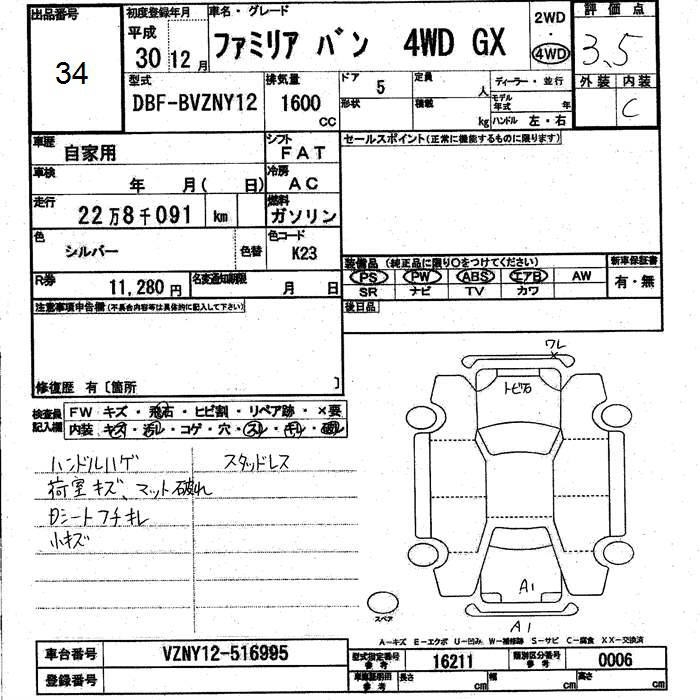 出品番号
34
初度登録年月
平成
30 12 月
車名・グレード
ファミリア バン 4WD GX
2WD
・
4WD
評 価 点
3.5
外装 内装
C
型式
DBF-BVZNY12
排気量
1600
cc
ドア
5
形状
定員
人
積載
kg
ディーラー・並行
モデル年式 年
ハンドル 左・右
車歴
自家用
シフト
FAT
車検
年 月( 日)
冷房
AC
走行
22万8千091 km
燃料
ガソリン
色
シルバー
色替
色コード
K23
R券
11,280 円
名変通知期限
月 日
セールスポイント(正常に機能するものに限ります)
装備品(純正品に限り○をつけてください)
PS PW ABS エアB AW
SR ナビ TV カワ
新車保証書
有・無
後日品
注意事項申告欄(不具合内容等は具体的に記入して下さい)
修復歴 有〔箇所 〕
検査員記入欄
FW キズ・飛石・ヒビ割・リペア跡・×要
内装 キズ・汚レ・コゲ・穴・スレ・キレ・破レ
ハンドルハゲ
スタッドレス
荷室キズ、マット破れ
Dシートフチキレ
小キズ
ワレ
×
トビ石
A1
A1
スペア
A-キズ E-エクボ U-凹み W-補修跡 S-サビ C-腐食 XX-交換済
車台番号
VZNY12-516995
登録番号
型式指定番号
参考
16211
類別区分番号
参考
0006
車庫証明用
参考
長さ cm
幅 cm
高さ cm